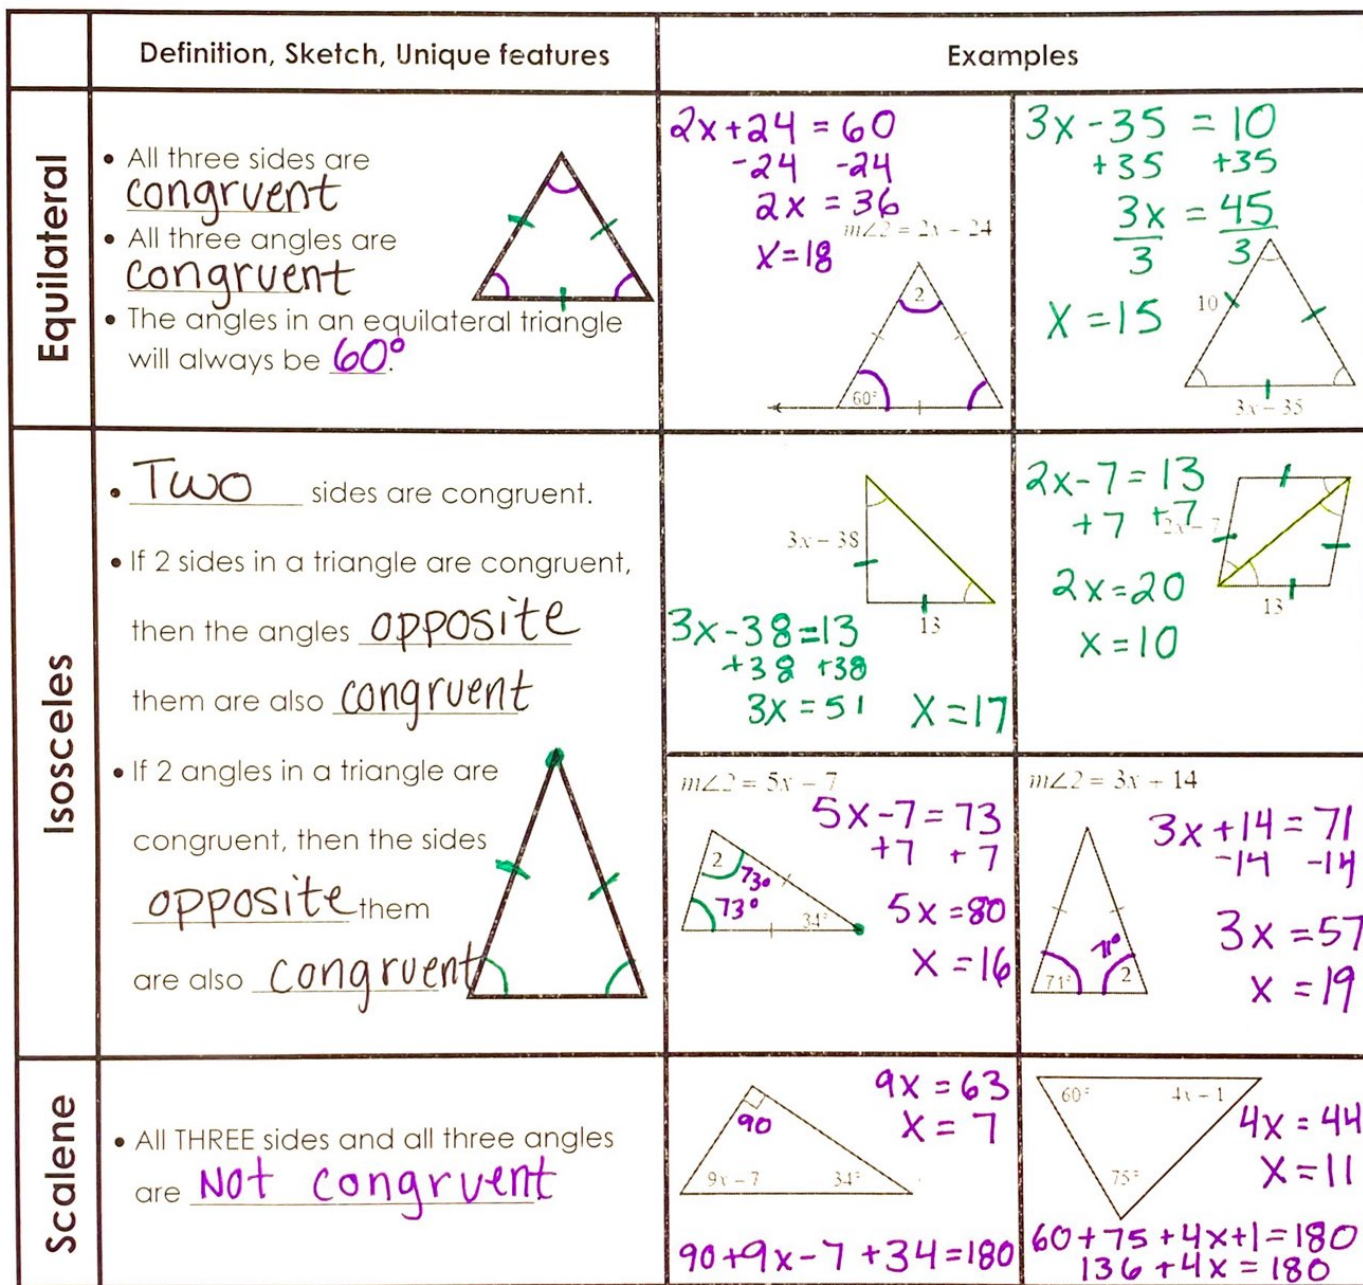 Definition, Sketch, Unique features
Examples
Equilateral
• All three sides are
congruent
• All three angles are
congruent
• The angles in an equilateral triangle
will always be 60°.
2x+24 = 60
-24 -24
2x = 36
x=18
m∠2 = 2x + 24
2
60°
3x-35 = 10
+35 +35
3x = 45
3 3
x=15
10
3x - 35
Isosceles
• Two sides are congruent.
• If 2 sides in a triangle are congruent,
then the angles opposite
them are also congruent
• If 2 angles in a triangle are
congruent, then the sides
opposite them
are also congruent
3x - 38
13
3x-38=13
+38 +38
3x = 51 x=17
2x-7=13
+7 +7
2x - 7
2x=20
x=10
13
m∠2 = 5x - 7
5x-7=73
+7 +7
2
73°
73°
34°
5x=80
x=16
m∠2 = 3x + 14
3x+14=71
-14 -14
3x=57
x=19
71°
71°
2
Scalene
• All THREE sides and all three angles
are Not congruent
9x=63
x=7
90
9x - 7
34°
90+9x-7+34=180
60°
4x + 1
75°
4x=44
x=11
60+75+4x+1=180
136+4x=180